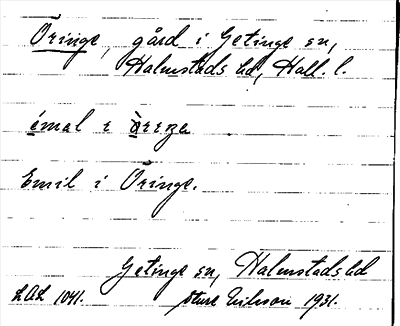 Öringe, gård i Getinge sn,
Halmstads hd, Hall. l.
émal i
Emil i Öringe.
Getinge sn, Halmstads hd
LAL 1041. Sture Erikson 1931.